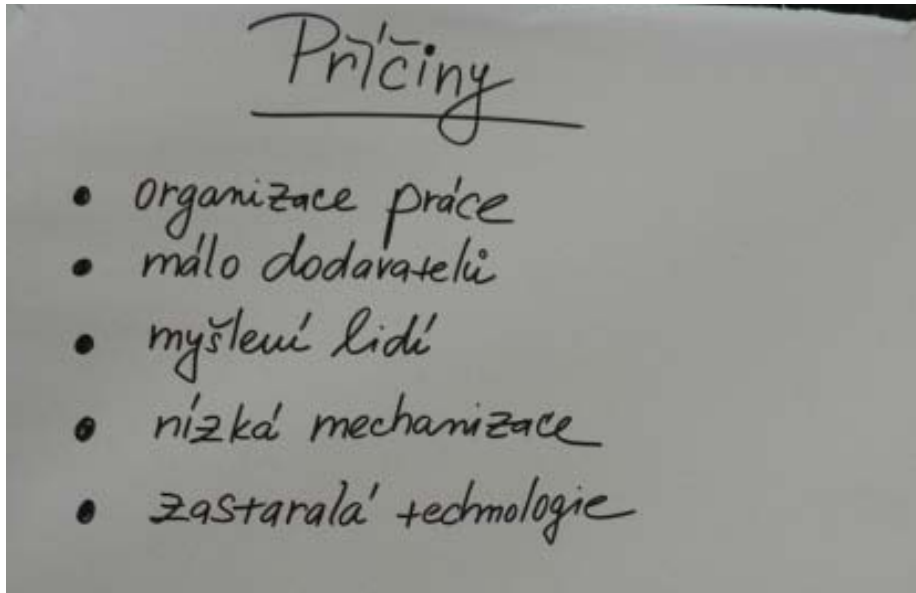 Příčiny
• organizace práce
• málo dodavatelů
• myšlení lidí
• nízká mechanizace
• zastaralá technologie